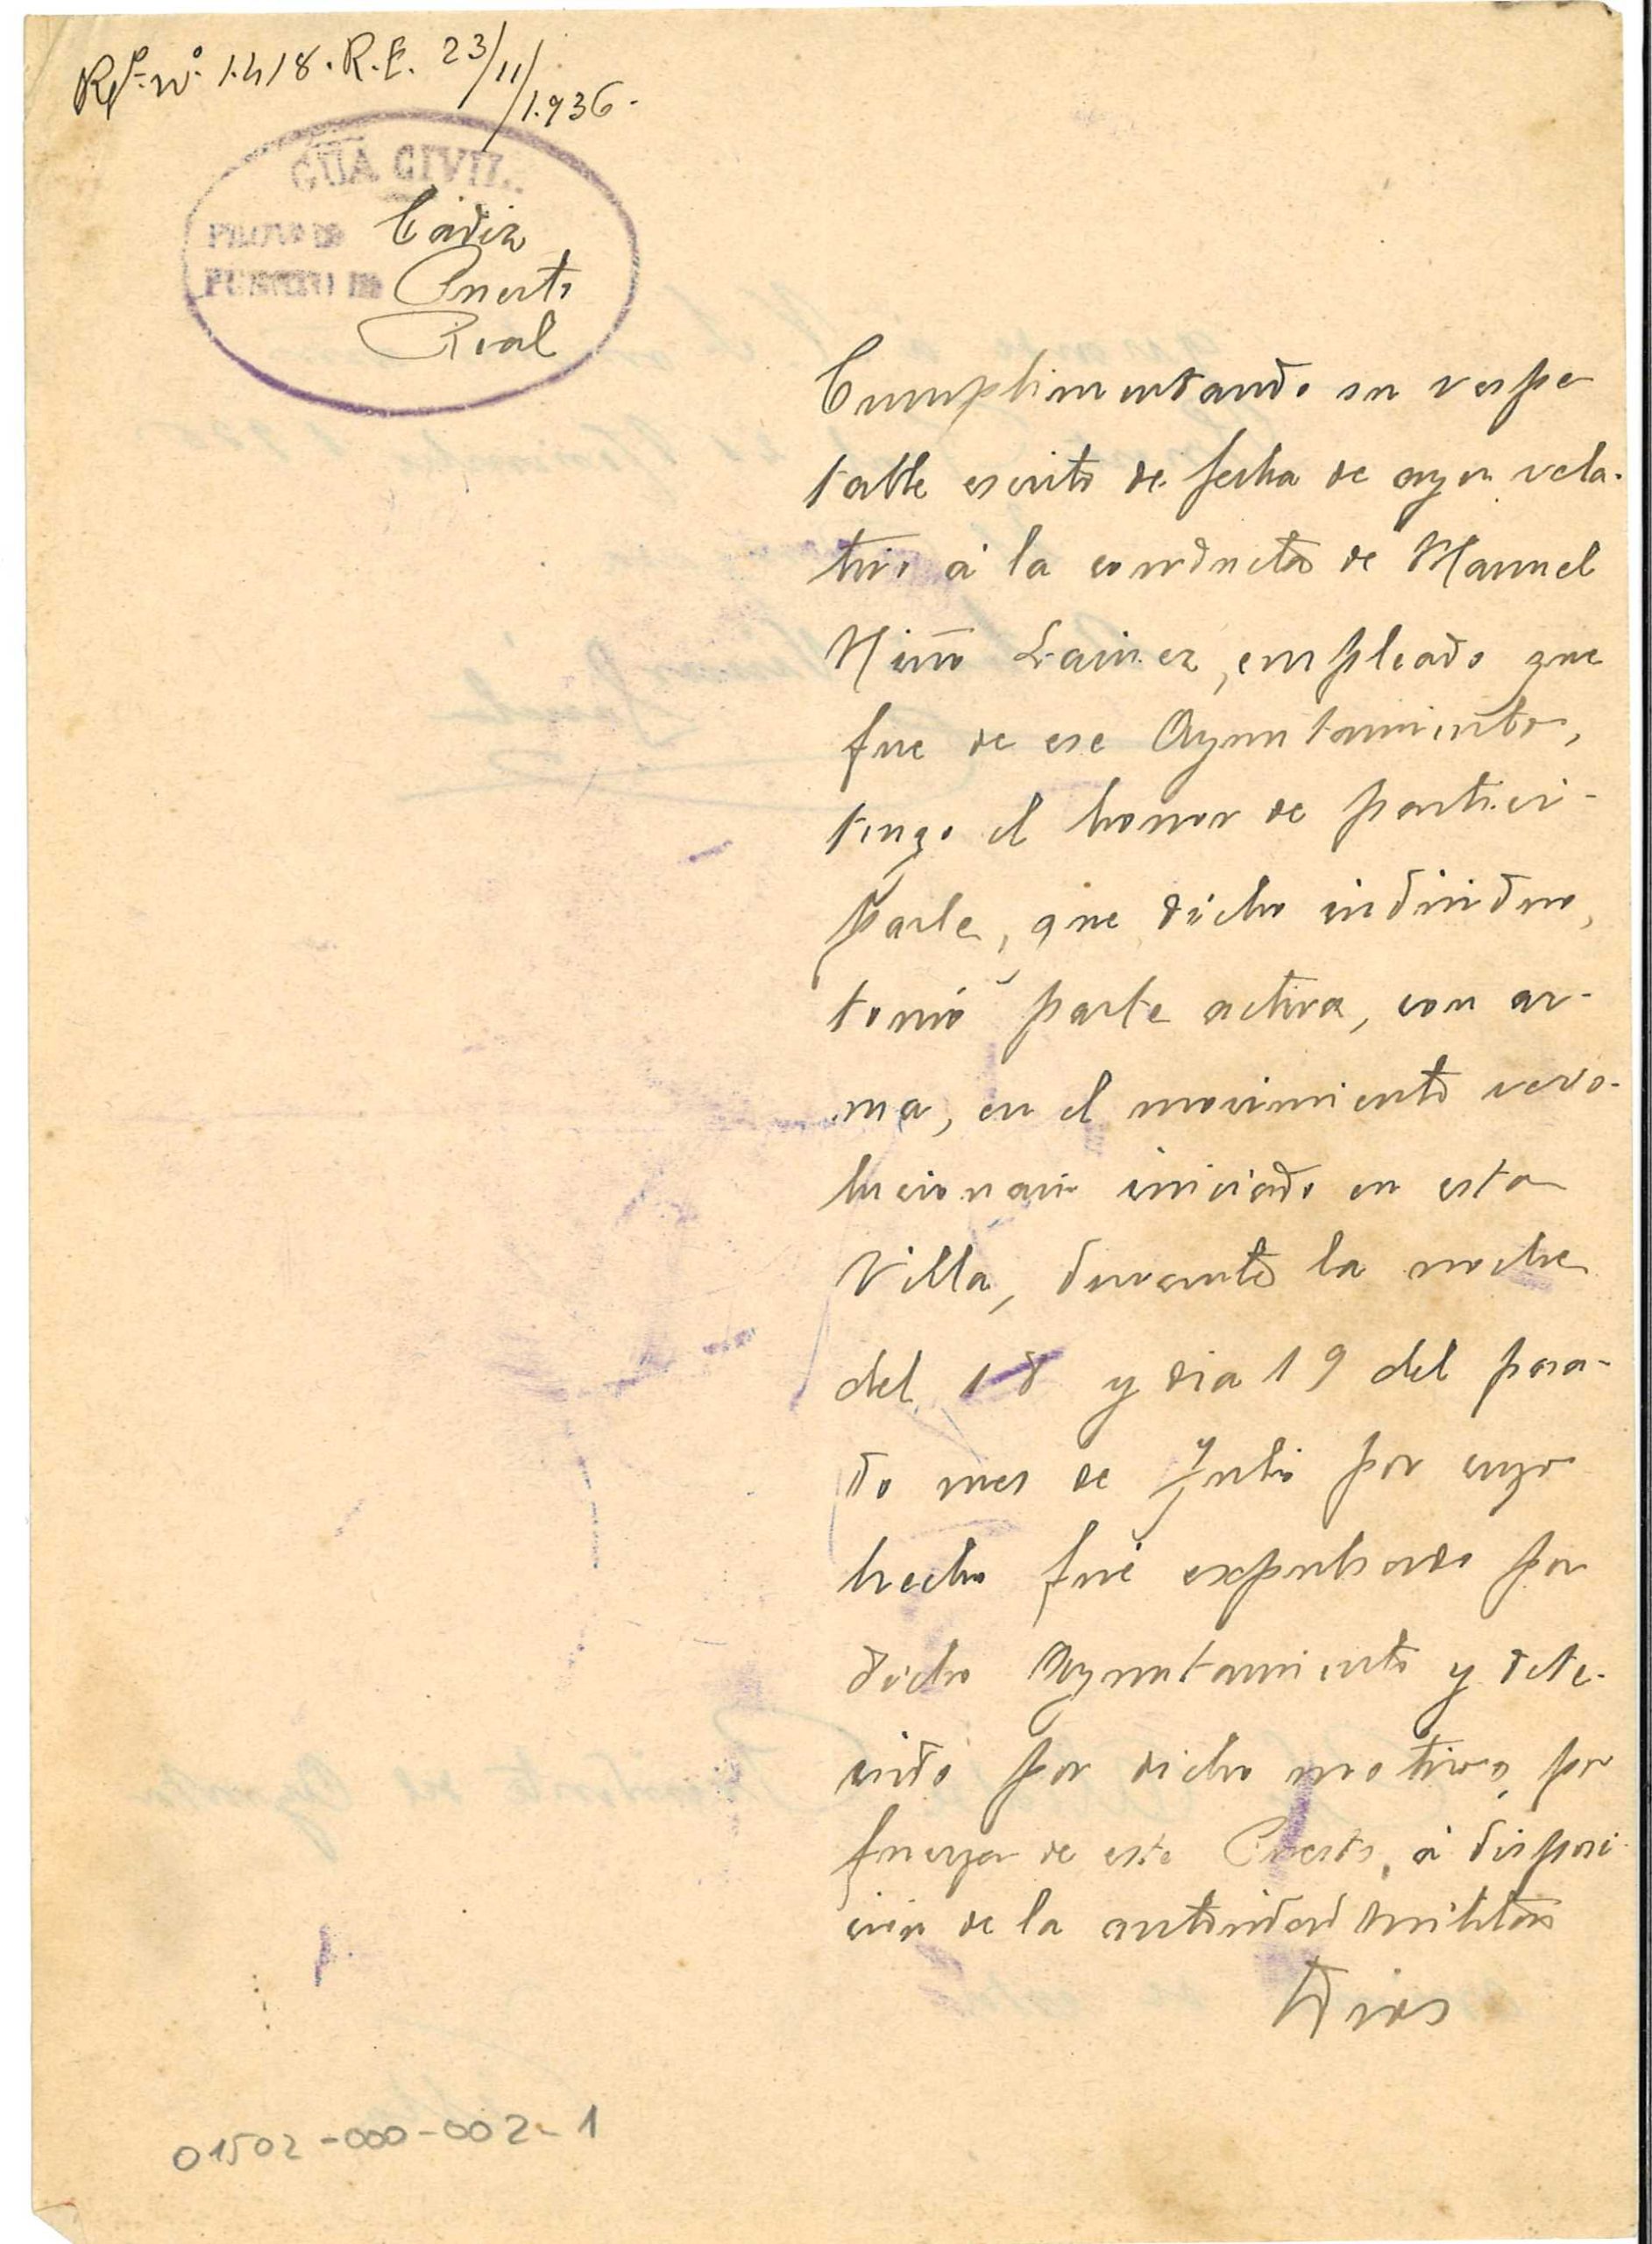 Rº nº 1.418. R.E. 23/11/1.936.
GUA CIVIL.
PROVª DE Cádiz
PUESTO DE Puerto
Real
Cumplimentando su respe
table escrito de fecha de ayer rela-
tivo á la conducta de Manuel
Niño Lainez, empleado que
fue de ese Ayuntamiento,
tengo el honor de partici-
parle, que dicho individuo,
tomó parte activa, con ar-
ma, en el movimiento revo-
lucionario iniciado en esta
Villa, durante la noche
del 18 y dia 19 del pasa-
do mes de Julio por cuyo
hecho fué expulsado por
dicho Ayuntamiento y dete-
nido por dicho motivo, por
fuerza de este Puesto, á disposi-
cion de la autoridad militar
Dios
01502-000-002-1